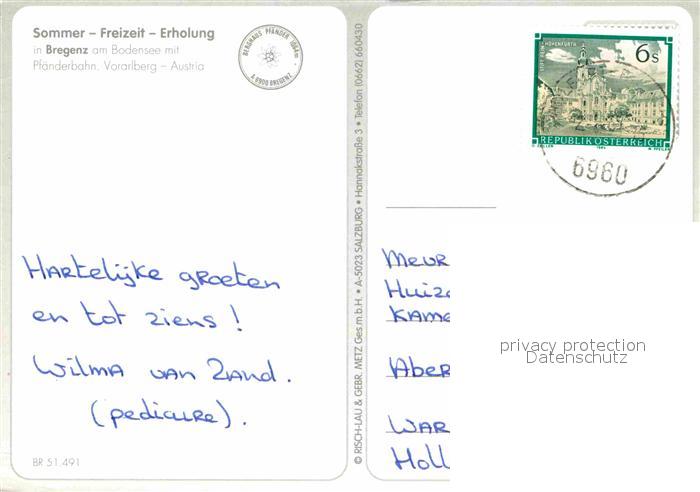 Sommer – Freizeit – Erholung
in Bregenz am Bodensee mit
Pfänderbahn. Vorarlberg – Austria
BERGHAUS PFÄNDER 1064m
A-6900 BREGENZ
Hartelijke groeten
en tot ziens!
Wilma van Zand.
(pedicure).
BR 51.491
© RISCH-LAU & GEBR. METZ Ges.m.b.H. • A-5023 SALZBURG • Hannakstraße 3 • Telefon (0662) 660430
6s
REPUBLIK ÖSTERREICH
6960
Meur
Huiz
Kame
Aber
War
Holl
privacy protection
Datenschutz